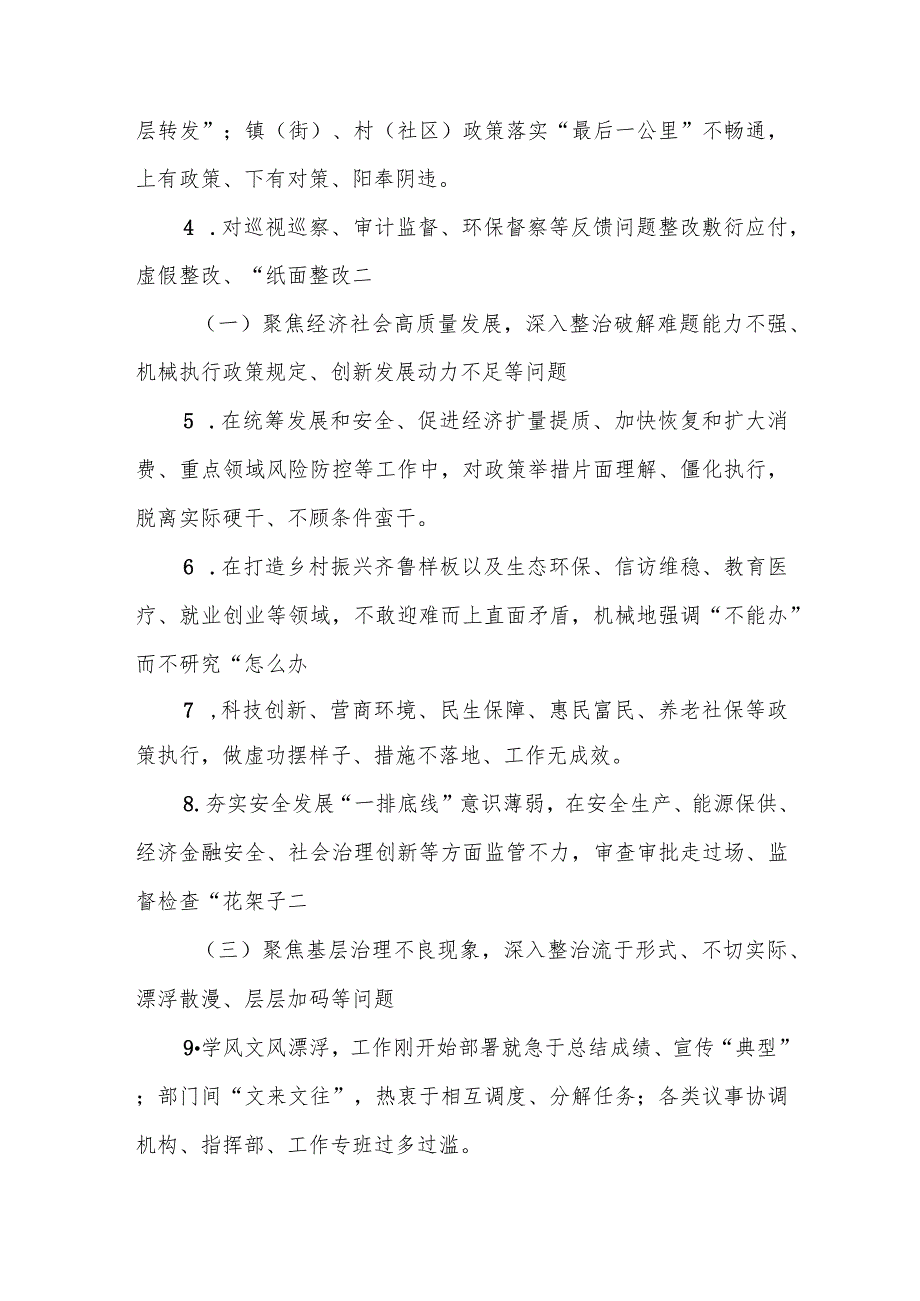 层转发”；镇（街）、村（社区）政策落实“最后一公里”不畅通，
上有政策、下有对策、阳奉阴违。
4 .对巡视巡察、审计监督、环保督察等反馈问题整改敷衍应付，
虚假整改、“纸面整改二
（一）聚焦经济社会高质量发展，深入整治破解难题能力不强、
机械执行政策规定、创新发展动力不足等问题
5 .在统筹发展和安全、促进经济扩量提质、加快恢复和扩大消
费、重点领域风险防控等工作中，对政策举措片面理解、僵化执行，
脱离实际硬干、不顾条件蛮干。
6 .在打造乡村振兴齐鲁样板以及生态环保、信访维稳、教育医
疗、就业创业等领域，不敢迎难而上直面矛盾，机械地强调“不能办”
而不研究“怎么办
7 ,科技创新、营商环境、民生保障、惠民富民、养老社保等政
策执行，做虚功摆样子、措施不落地、工作无成效。
8.夯实安全发展“一排底线”意识薄弱，在安全生产、能源保供、
经济金融安全、社会治理创新等方面监管不力，审查审批走过场、监
督检查“花架子二
（三）聚焦基层治理不良现象，深入整治流于形式、不切实际、
漂浮散漫、层层加码等问题
9•学风文风漂浮，工作刚开始部署就急于总结成绩、宣传“典型”
；部门间“文来文往”，热衷于相互调度、分解任务；各类议事协调
机构、指挥部、工作专班过多过滥。